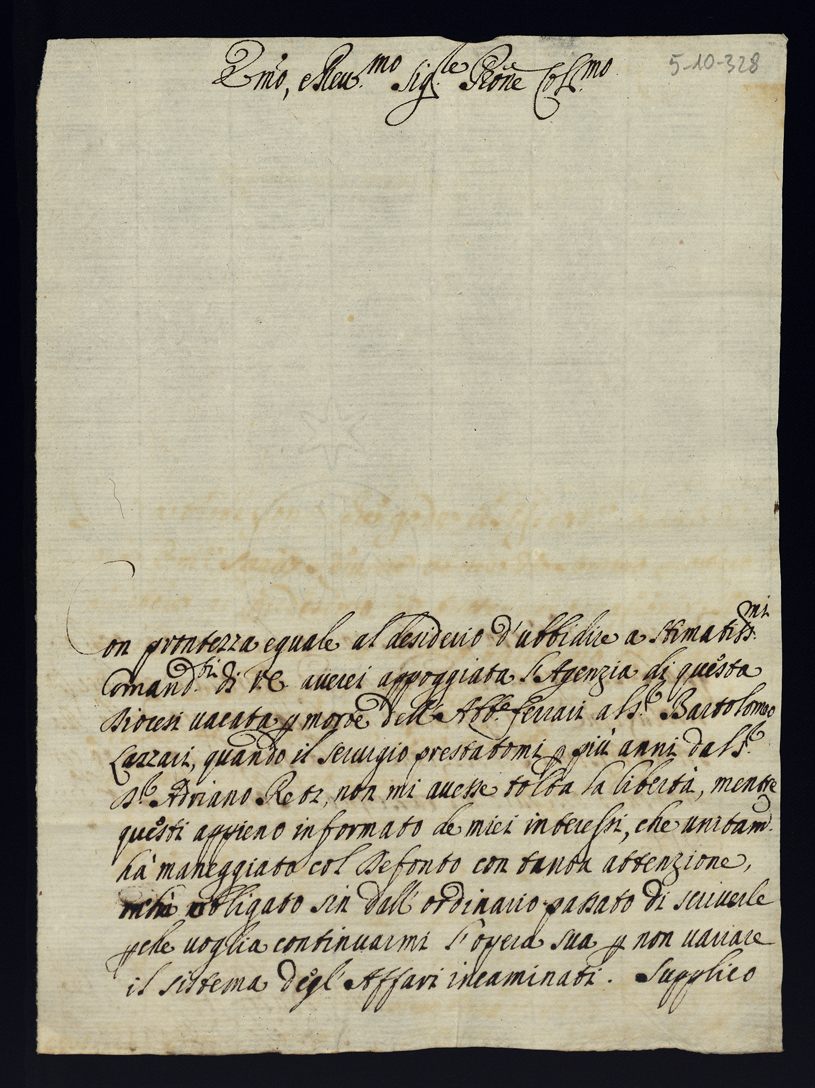 5-10-328
Emo, e Reu.mo Sig.re Prone Col.mo
Con prontezza eguale al desiderio d'ubbidire a stimatiss.mi
Comand.ti di V.E. averei appoggiata l'Agenzia di questa
Diocesi uacata p morte dell'Abb.e Ferrari al S.r Bartolomeo
Lazzari, quando il seruigio prestatomi p più anni dal S.r
D.r Adriano Retz, non mi auesse tolta la libertà, mentre
questi appieno informato de miei interessi, che unitam.
hà maneggiato col Defonto con tanta attenzione,
m'hà obligato sin dall'ordinario passato di scriuerle
pche uoglia continuarmi l'opera sua p non uariare
il sistema degl'Affari incaminati. Supplico